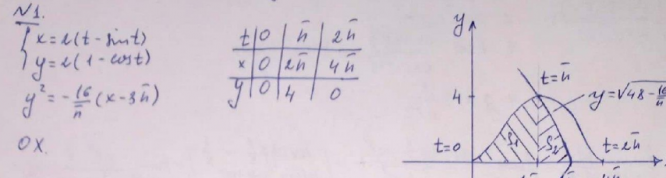 N1.
{ x=2(t-sint)
{ y=2(1-cost)
y² = -16/π̄ (x-3π̄)
OX.
t | 0 | π̄ | 2π̄
x | 0 | 2π̄ | 4π̄
y | 0 | 4 | 0
y
t=π̄
4
y=√48-16
t=0
S₁
S₂
t=2π̄